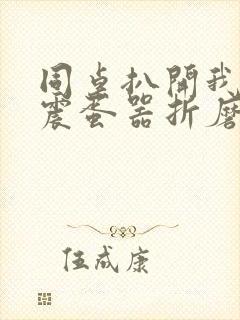 同桌扒開我
震蛋器折磨
伍成康